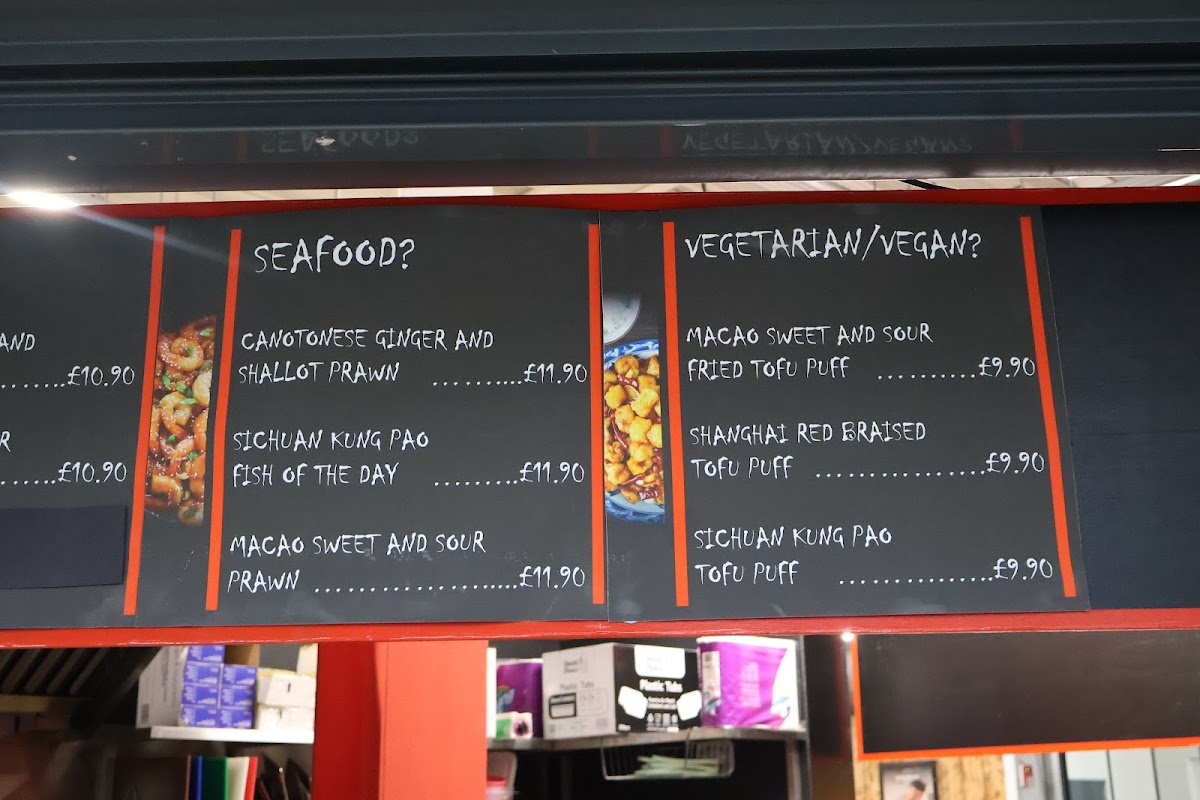 AND
.......£10.90
R
......£10.90
SEAFOOD?
CANOTONESE GINGER AND
SHALLOT PRAWN ..........£11.90
SICHUAN KUNG PAO
FISH OF THE DAY .........£11.90
MACAO SWEET AND SOUR
PRAWN ......................£11.90
VEGETARIAN/VEGAN?
MACAO SWEET AND SOUR
FRIED TOFU PUFF ..........£9.90
SHANGHAI RED BRAISED
TOFU PUFF .................£9.90
SICHUAN KUNG PAO
TOFU PUFF ...............£9.90
Plastic Tubs
Plastic Tubs